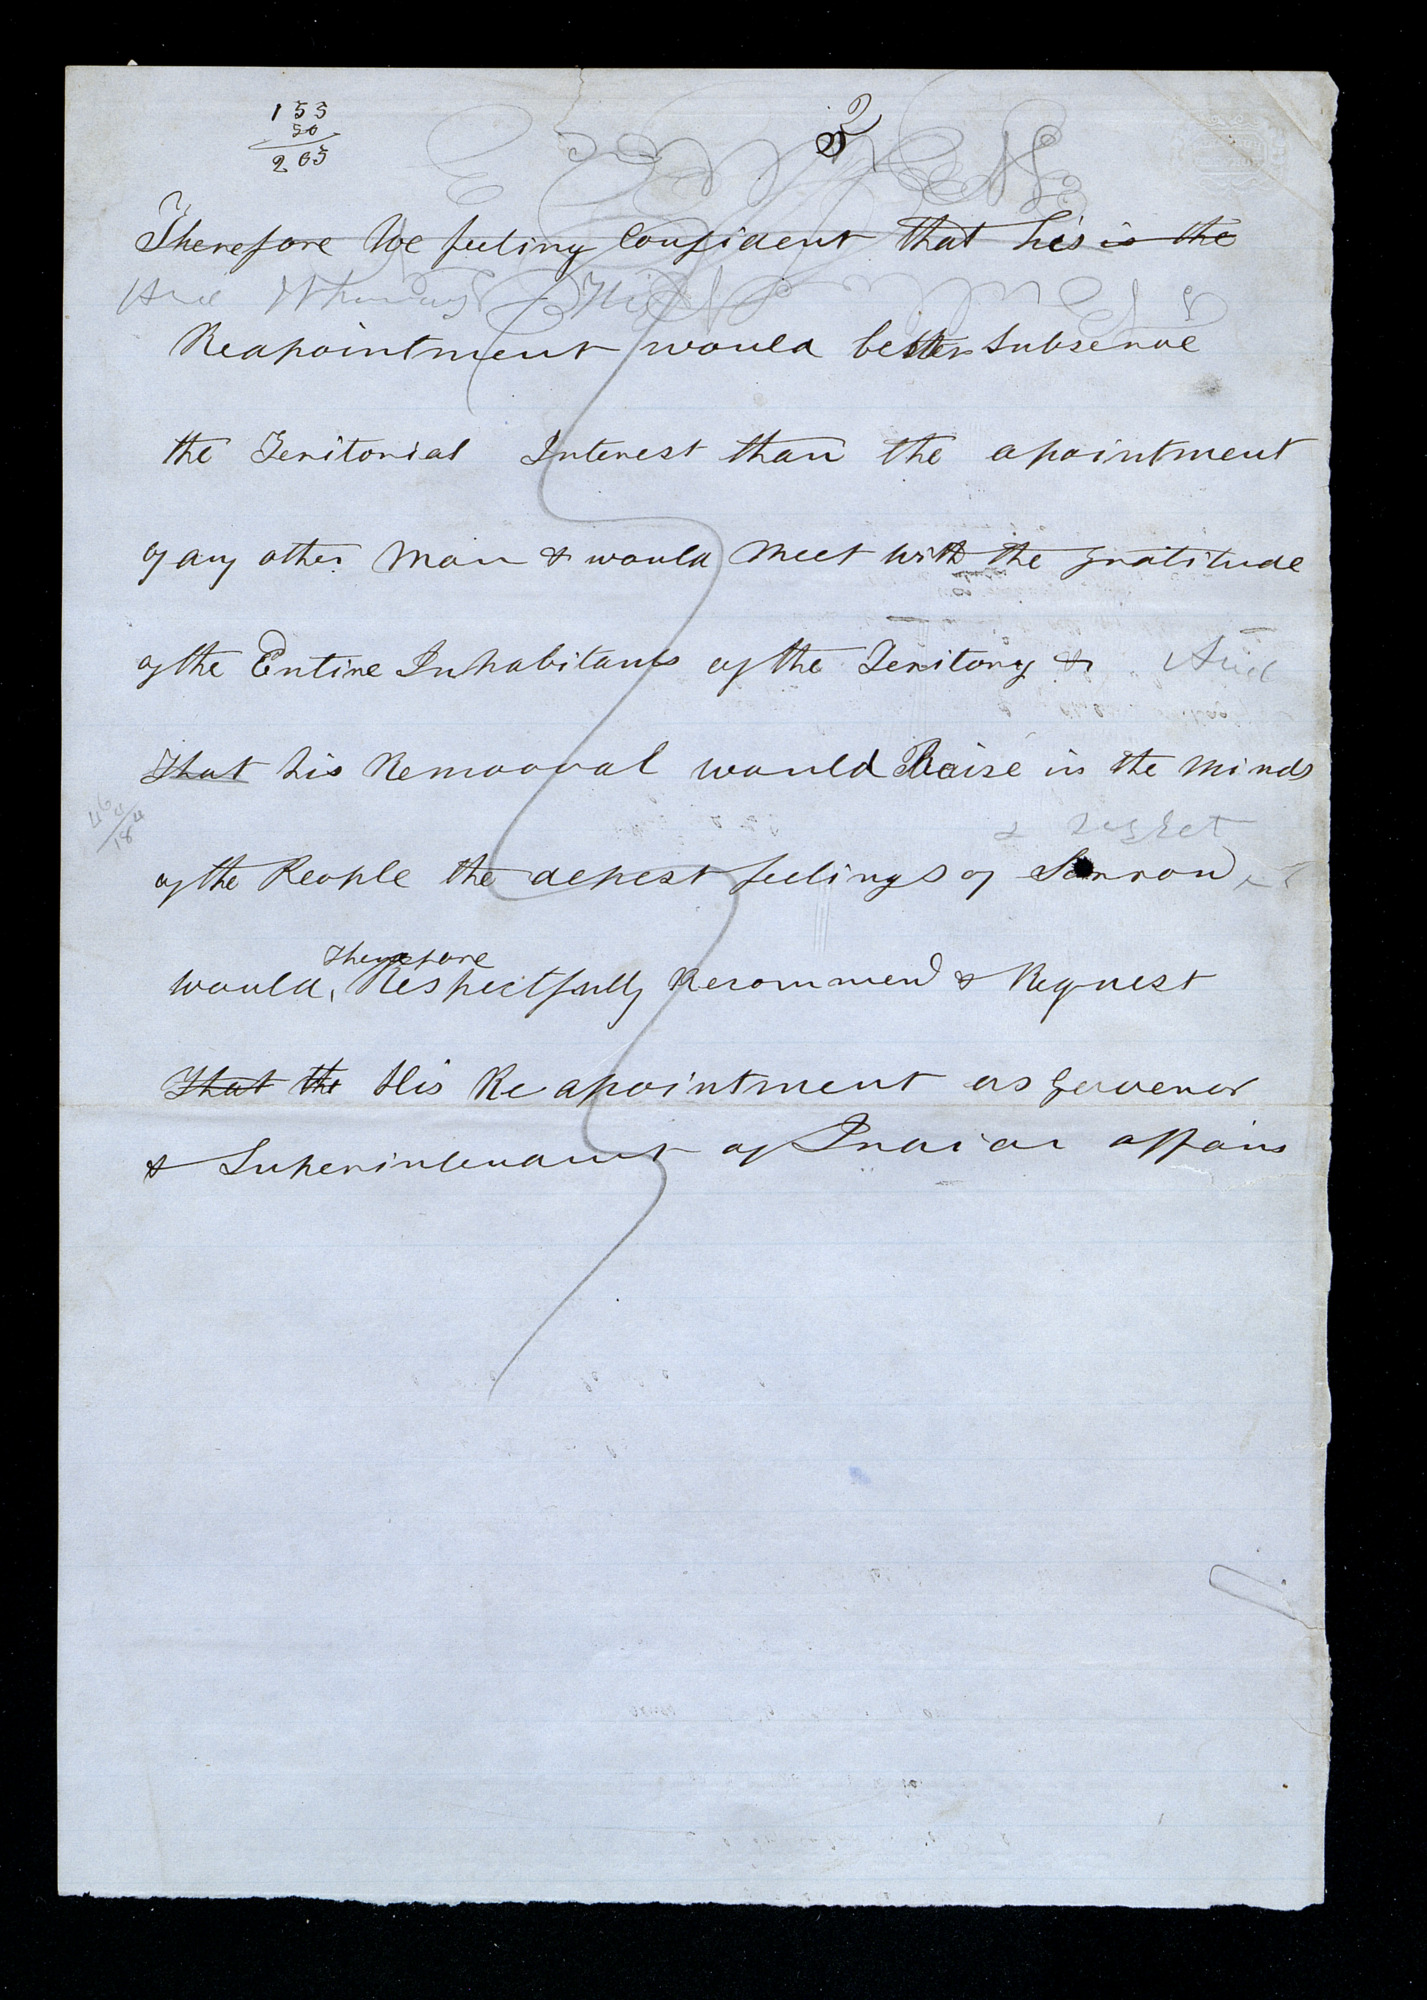 153
50
203
2
Therefore We feeling Confident that his is the
And Whereas His
Reapointment would better Subserve
the Teritorial Interest than the apointment
of any other Man & would Meet with the gratitude
of the Entire Inhabitants of the Teritory & And
that his Remooval would Raise in the minds
& regret
of the People the depest feelings of Sorrow
therefore
would, Respectfully Recommend & Request
That the His Reapointment as Govenor
& Superintendant of Indian affairs